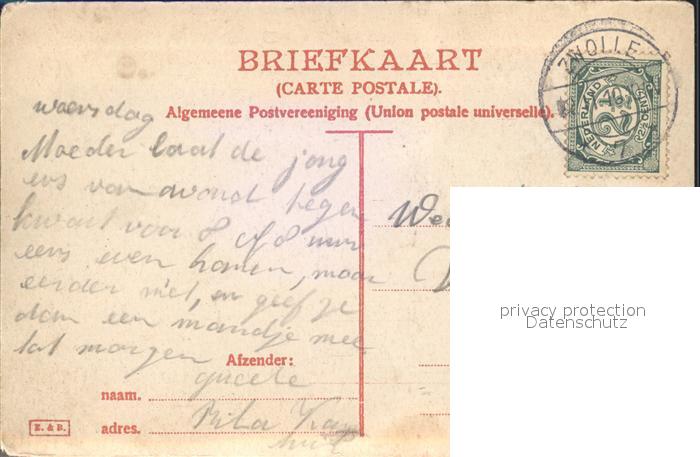 ZWOLLE
NEDERLAND
2½ CENT
BRIEFKAART
(CARTE POSTALE).
Algemeene Postvereeniging (Union postale universelle).
woensdag
Moeder laat de jong
eens van avond tegen
kwart voor 8 of 8 uur
eens even komen, maar
eerder niet, en geef ze
dan een mandje mee
tot morgen
We
privacy protection
Datenschutz
Afzender:
naam.
adres.
E. & B.